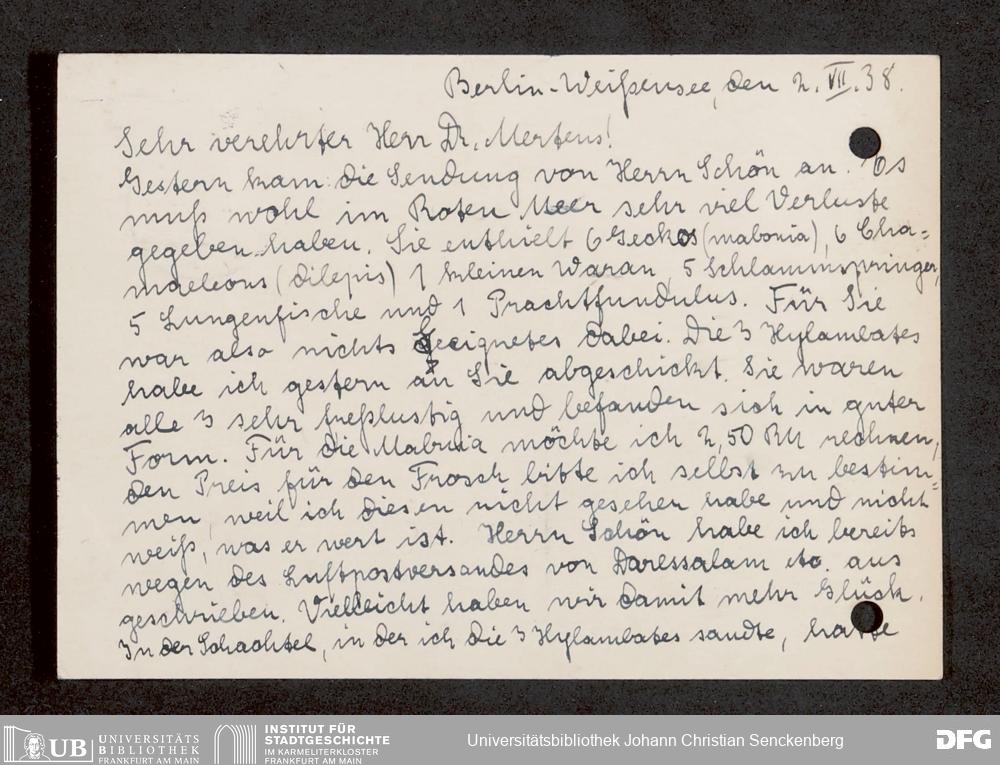 Berlin-Weißensee, den 2. VII. 38.
Sehr verehrter Herr Dr. Mertens!
Gestern kam die Sendung von Herrn Schön an. Es
muß wohl im Roten Meer sehr viel Verluste
gegeben haben. Sie enthielt 6 Geckos (mabonia), 6 Cha=
maeleons (dilepis) 1 kleinen Waran, 5 Schlammspringer,
5 Lungenfische und 1 Prachtfundulus. Für Sie
war also nichts Geeignetes dabei. Die 3 Hylambates
habe ich gestern an Sie abgeschickt. Sie waren
alle 3 sehr freßlustig und befanden sich in guter
Form. Für die Mabuia möchte ich 2,50 RM rechnen,
den Preis für den Frosch bitte ich selbst zu bestim=
men, weil ich diesen nicht gesehen habe und nicht
weiß, was er wert ist. Herrn Schön habe ich bereits
wegen des Luftpostversandes von Daressalam etc. aus
geschrieben. Vielleicht haben wir damit mehr Glück.
In der Schachtel, in der ich die 3 Hylambates sandte, hatte
UB UNIVERSITÄTS
BIBLIOTHEK
FRANKFURT AM MAIN
INSTITUT FÜR
STADTGESCHICHTE
IM KARMELITERKLOSTER
FRANKFURT AM MAIN
Universitätsbibliothek Johann Christian Senckenberg
DFG